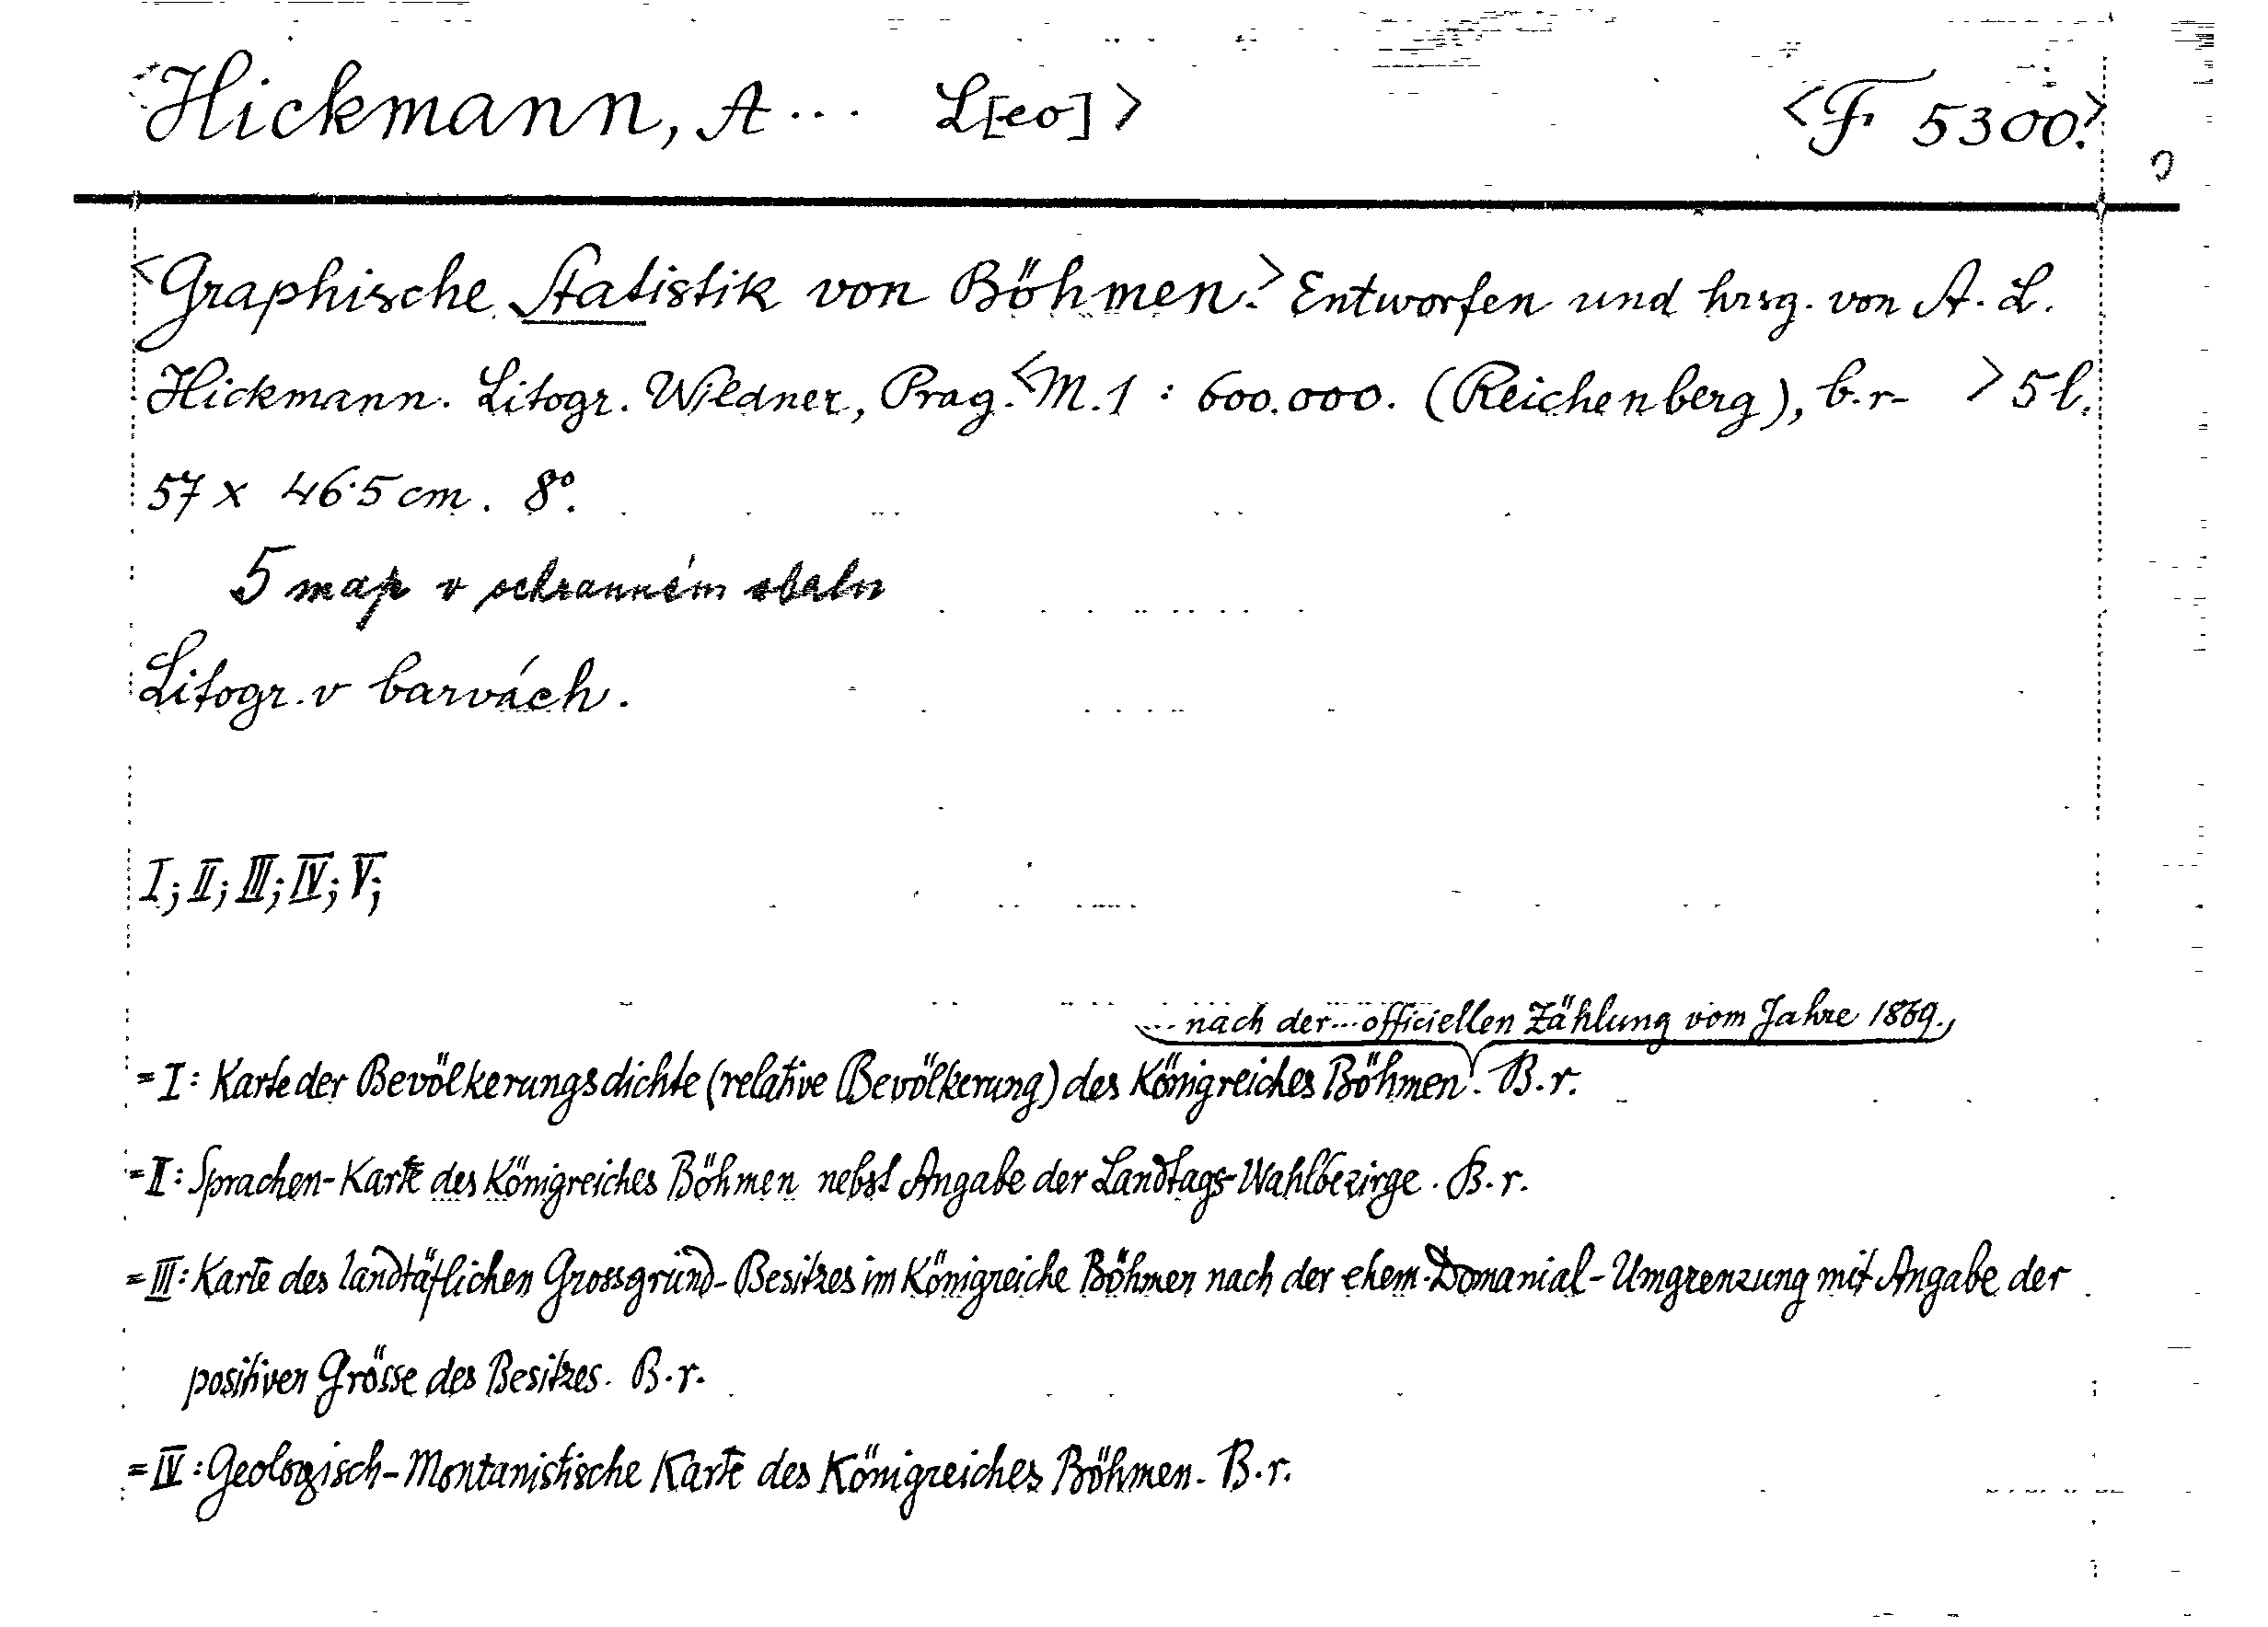 Hickmann, A... L[eo]> <F 5300.>
<Graphische Statistik von Böhmen.> Entworfen und hrsg. von A. L.
Hickmann. Litogr. Wildner, Prag. <M. 1 : 600.000. (Reichenberg), b.r- > 5 l.
57 x 46·5 cm. 8°.
5 map v ochranném obalu
Litogr. v barvách.
I; II; III; IV; V;
... nach der ... officiellen Zählung vom Jahre 1869.,
= I: Karte der Bevölkerungsdichte (relative Bevölkerung) des Königreiches Böhmen. B.r.
= II: Sprachen-Karte des Königreiches Böhmen nebst Angabe der Landtags-Wahlbezirge. B.r.
= III: Karte des landtäflichen Grossgrund-Besitzes im Königreiche Böhmen nach der ehem. Domanial-Umgrenzung mit Angabe der
positiven Grösse des Besitzes. B.r.
= IV: Geologisch-Montanistische Karte des Königreiches Böhmen. B.r.